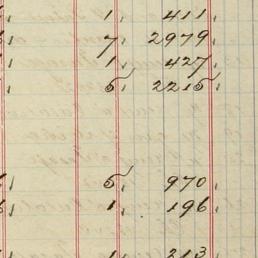 1, 411
7, 2979
1, 427
5, 2215
5, 970
1, 196
1, 213